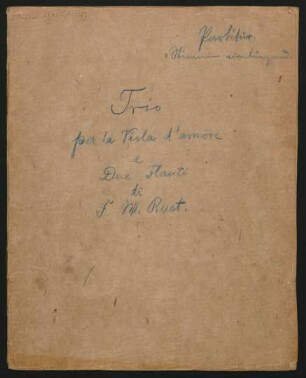 Partitur.
Trio
per la Viola d'amore
e
Due Flauti
di
F. W. Rust.